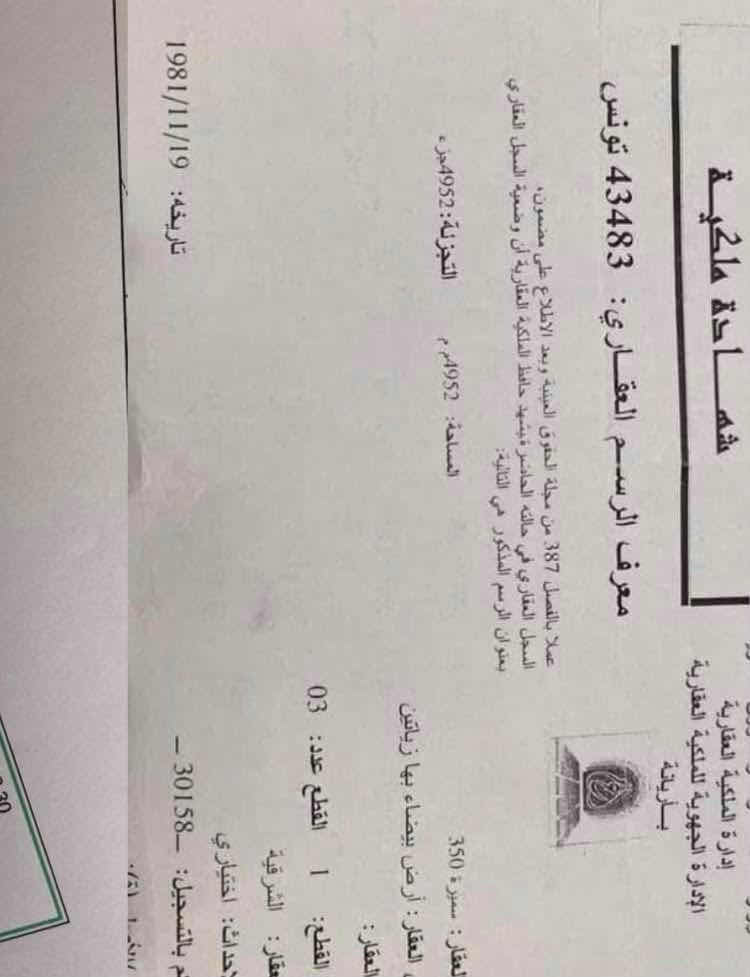 إدارة الملكية العقارية
الإدارة الجهوية للملكية العقارية
بأريانة
شهادة ملكية
معرف الرسم العقاري: 43483 تونس
عملا بالفصل 387 من مجلة الحقوق العينية وبعد الاطلاع على مضمون،
السجل العقاري في حالته الحاضرة يشهد حافظ الملكية العقارية أن وضعية السجل العقاري
بعنوان الرسم المذكور هي التالية:
العقار: سميرة 350 المساحة: 4952م م التجزئة: 4952جزء
العقار: أرض بيضاء بها زياتين
العقار:
القطع: 1 القطع عدد: 03
الشرقية
اختياري
بالتسجيل: 30158– – تاريخه: 1981/11/19